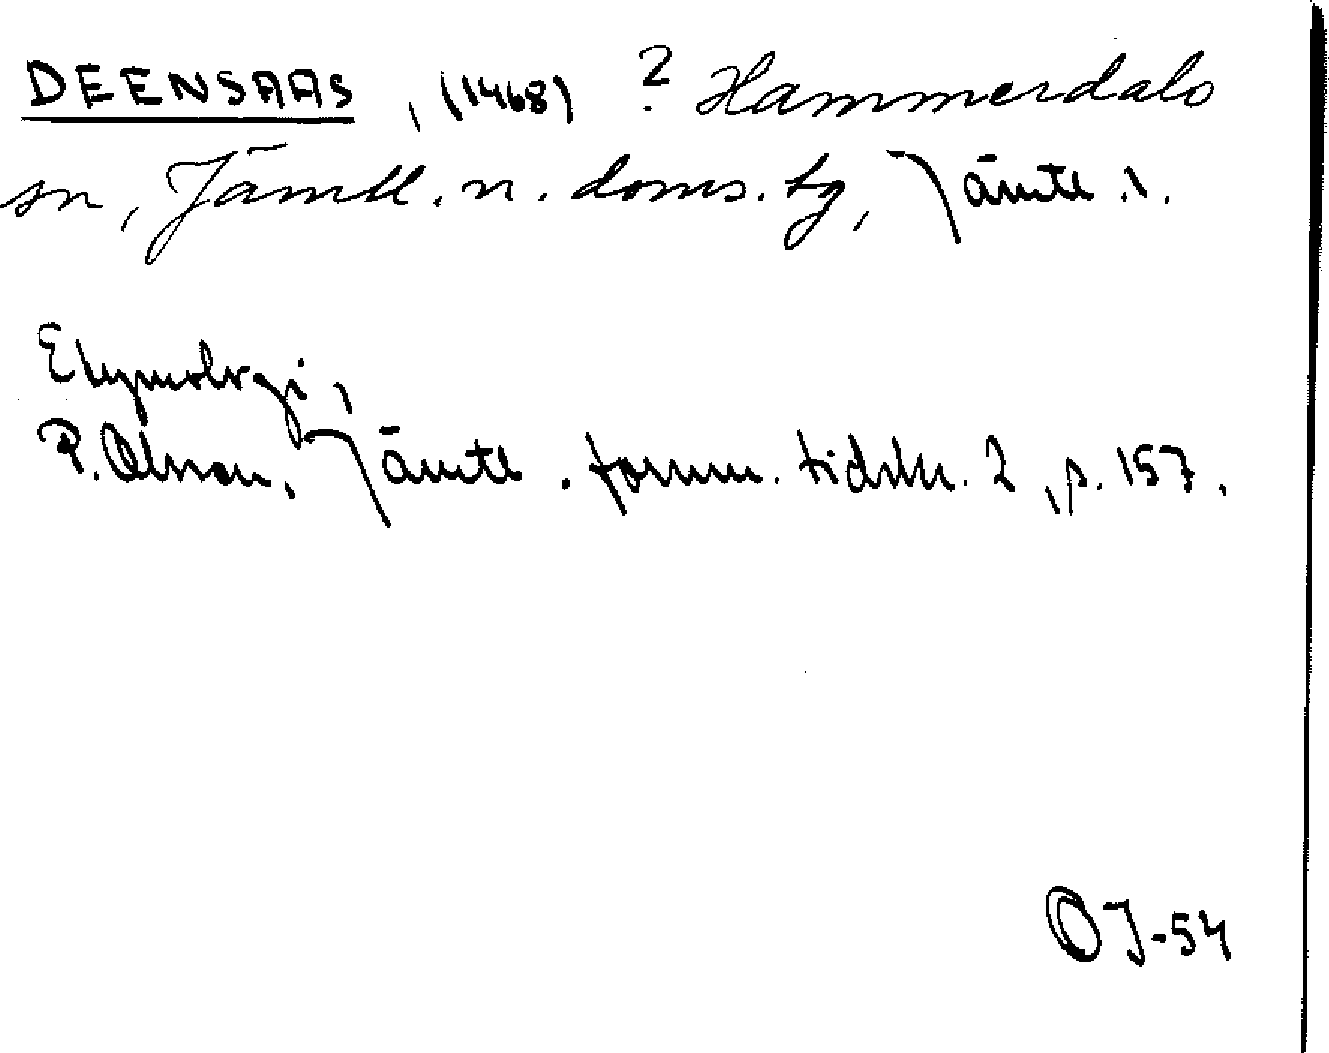 DEENSAAS, (1468) ? Hammerdals
sn, Jämtl. n. doms. tg, Jämtl. l.
Etymologi,
P. Olsson, Jämtl. fornm. tidskr. 2, p. 157.
OJ-54